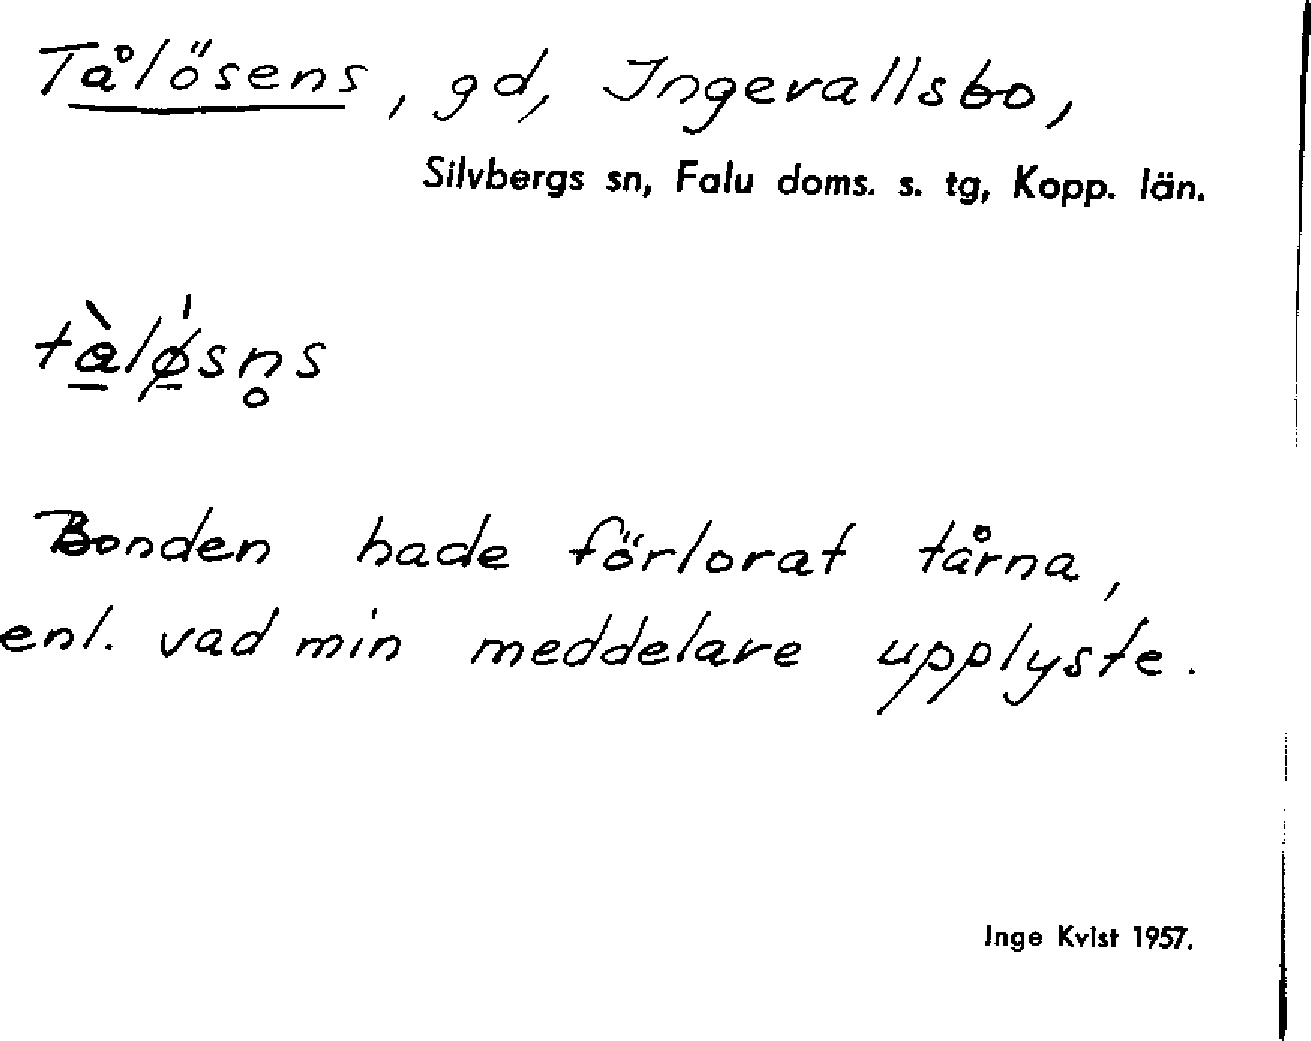 Tålösens, gd, Ingevallsbo,
Silvbergs sn, Falu doms. s. tg, Kopp. län.
tàlǿsn̥s
Bonden hade förlorat tårna,
enl. vad min meddelare upplyste.
Inge Kvist 1957.